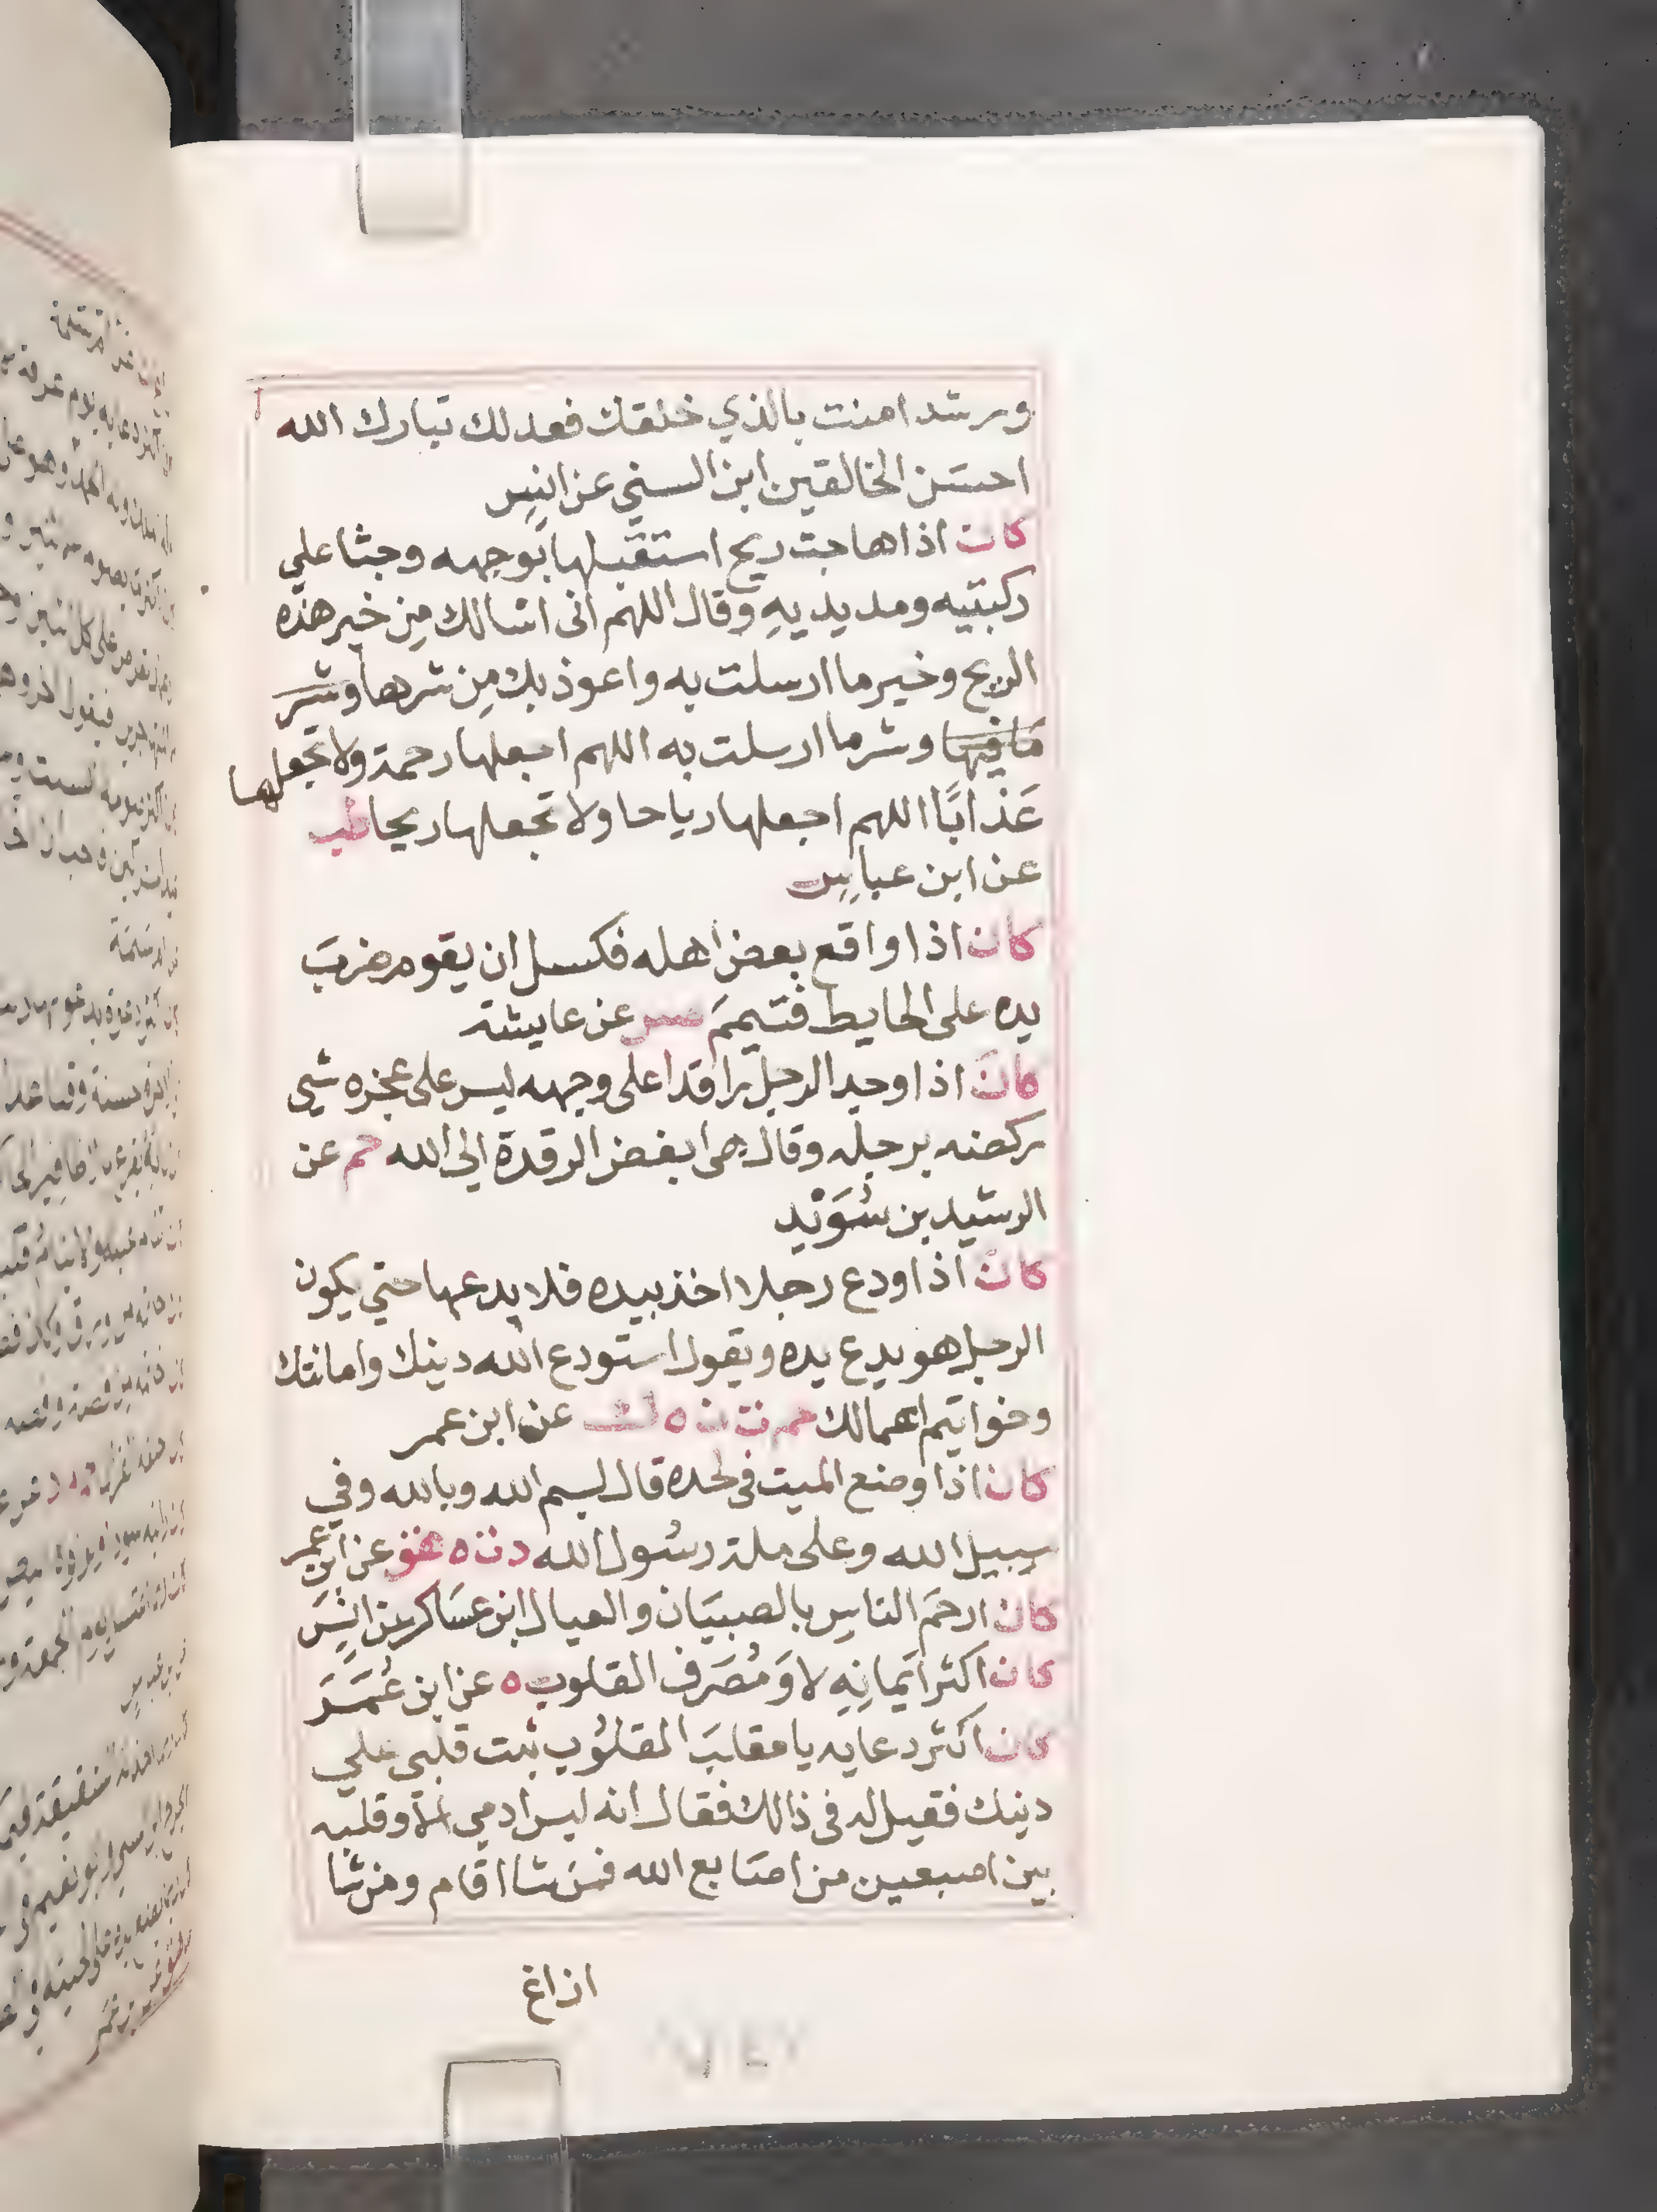 ورشد امنت بالذي خلقك فعدلك تبارك الله
احسَن الخالقين ابن السني عن انسِ
كان اذا هاجت ريح استقبلها بوجهه وجثا علي
ركبتيه ومد يديهِ وقال اللهم انى اسالك مِن خير هذه
الريح وخير ما ارسلت به واعوذ بك مِن شرها وشر
مَا فيها وشر ما ارسلت به اللهم اجعلها رحمة ولا تجعلها
عَذابًا اللهم اجعلها رياحا ولا تجعلها ريحا طب
عن ابن عباسِ
كان اذا واقع بعض اهله فكسل ان يقوم ضربَ
يده على الحايط فتيممَ طس عن عايشة
كانَ اذا وجد الرجل راقدا على وجهه ليس على عجزه شي
ركضه برجله وقال هى ابغض الرقدة الي الله حم عن
الرشيد بن سُوَيْد
كان اذا ودع رجلا اخذ بيده فلا يدعها حتي يكون
الرجل هو يدع يده ويقول استودع الله دينك وامانتك
وخواتيم اعمالك حم ت ن ه ك عن ابن عمر
كان اذا وضع الميت فى لحده قال بسم الله وبالله وفي
سبيل الله وعلى ملة رسُول الله د ت ه هق عن ابن عمر
كان ارحمَ الناسِ بالصبيَان والعيال ابن عسَاكر عن انسَ
كان اكثر ايَمانِهِ لا وَمُصَرف القلوب ه عن ابن عُمَرَ
كان اكثر دعايه يا مقلبَ القلوُب ثبت قلبي علي
دينك فقيل له فى ذالك فقال انه ليس ادمي الا وقلبه
بين اصبعين من اصَابع الله فمَن شا اقام ومن شا
ازاغ